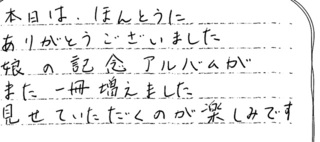 本日は、ほんとうに
ありがとうございました
娘の記念アルバムが
また一冊増えました
見せていただくのが楽しみです